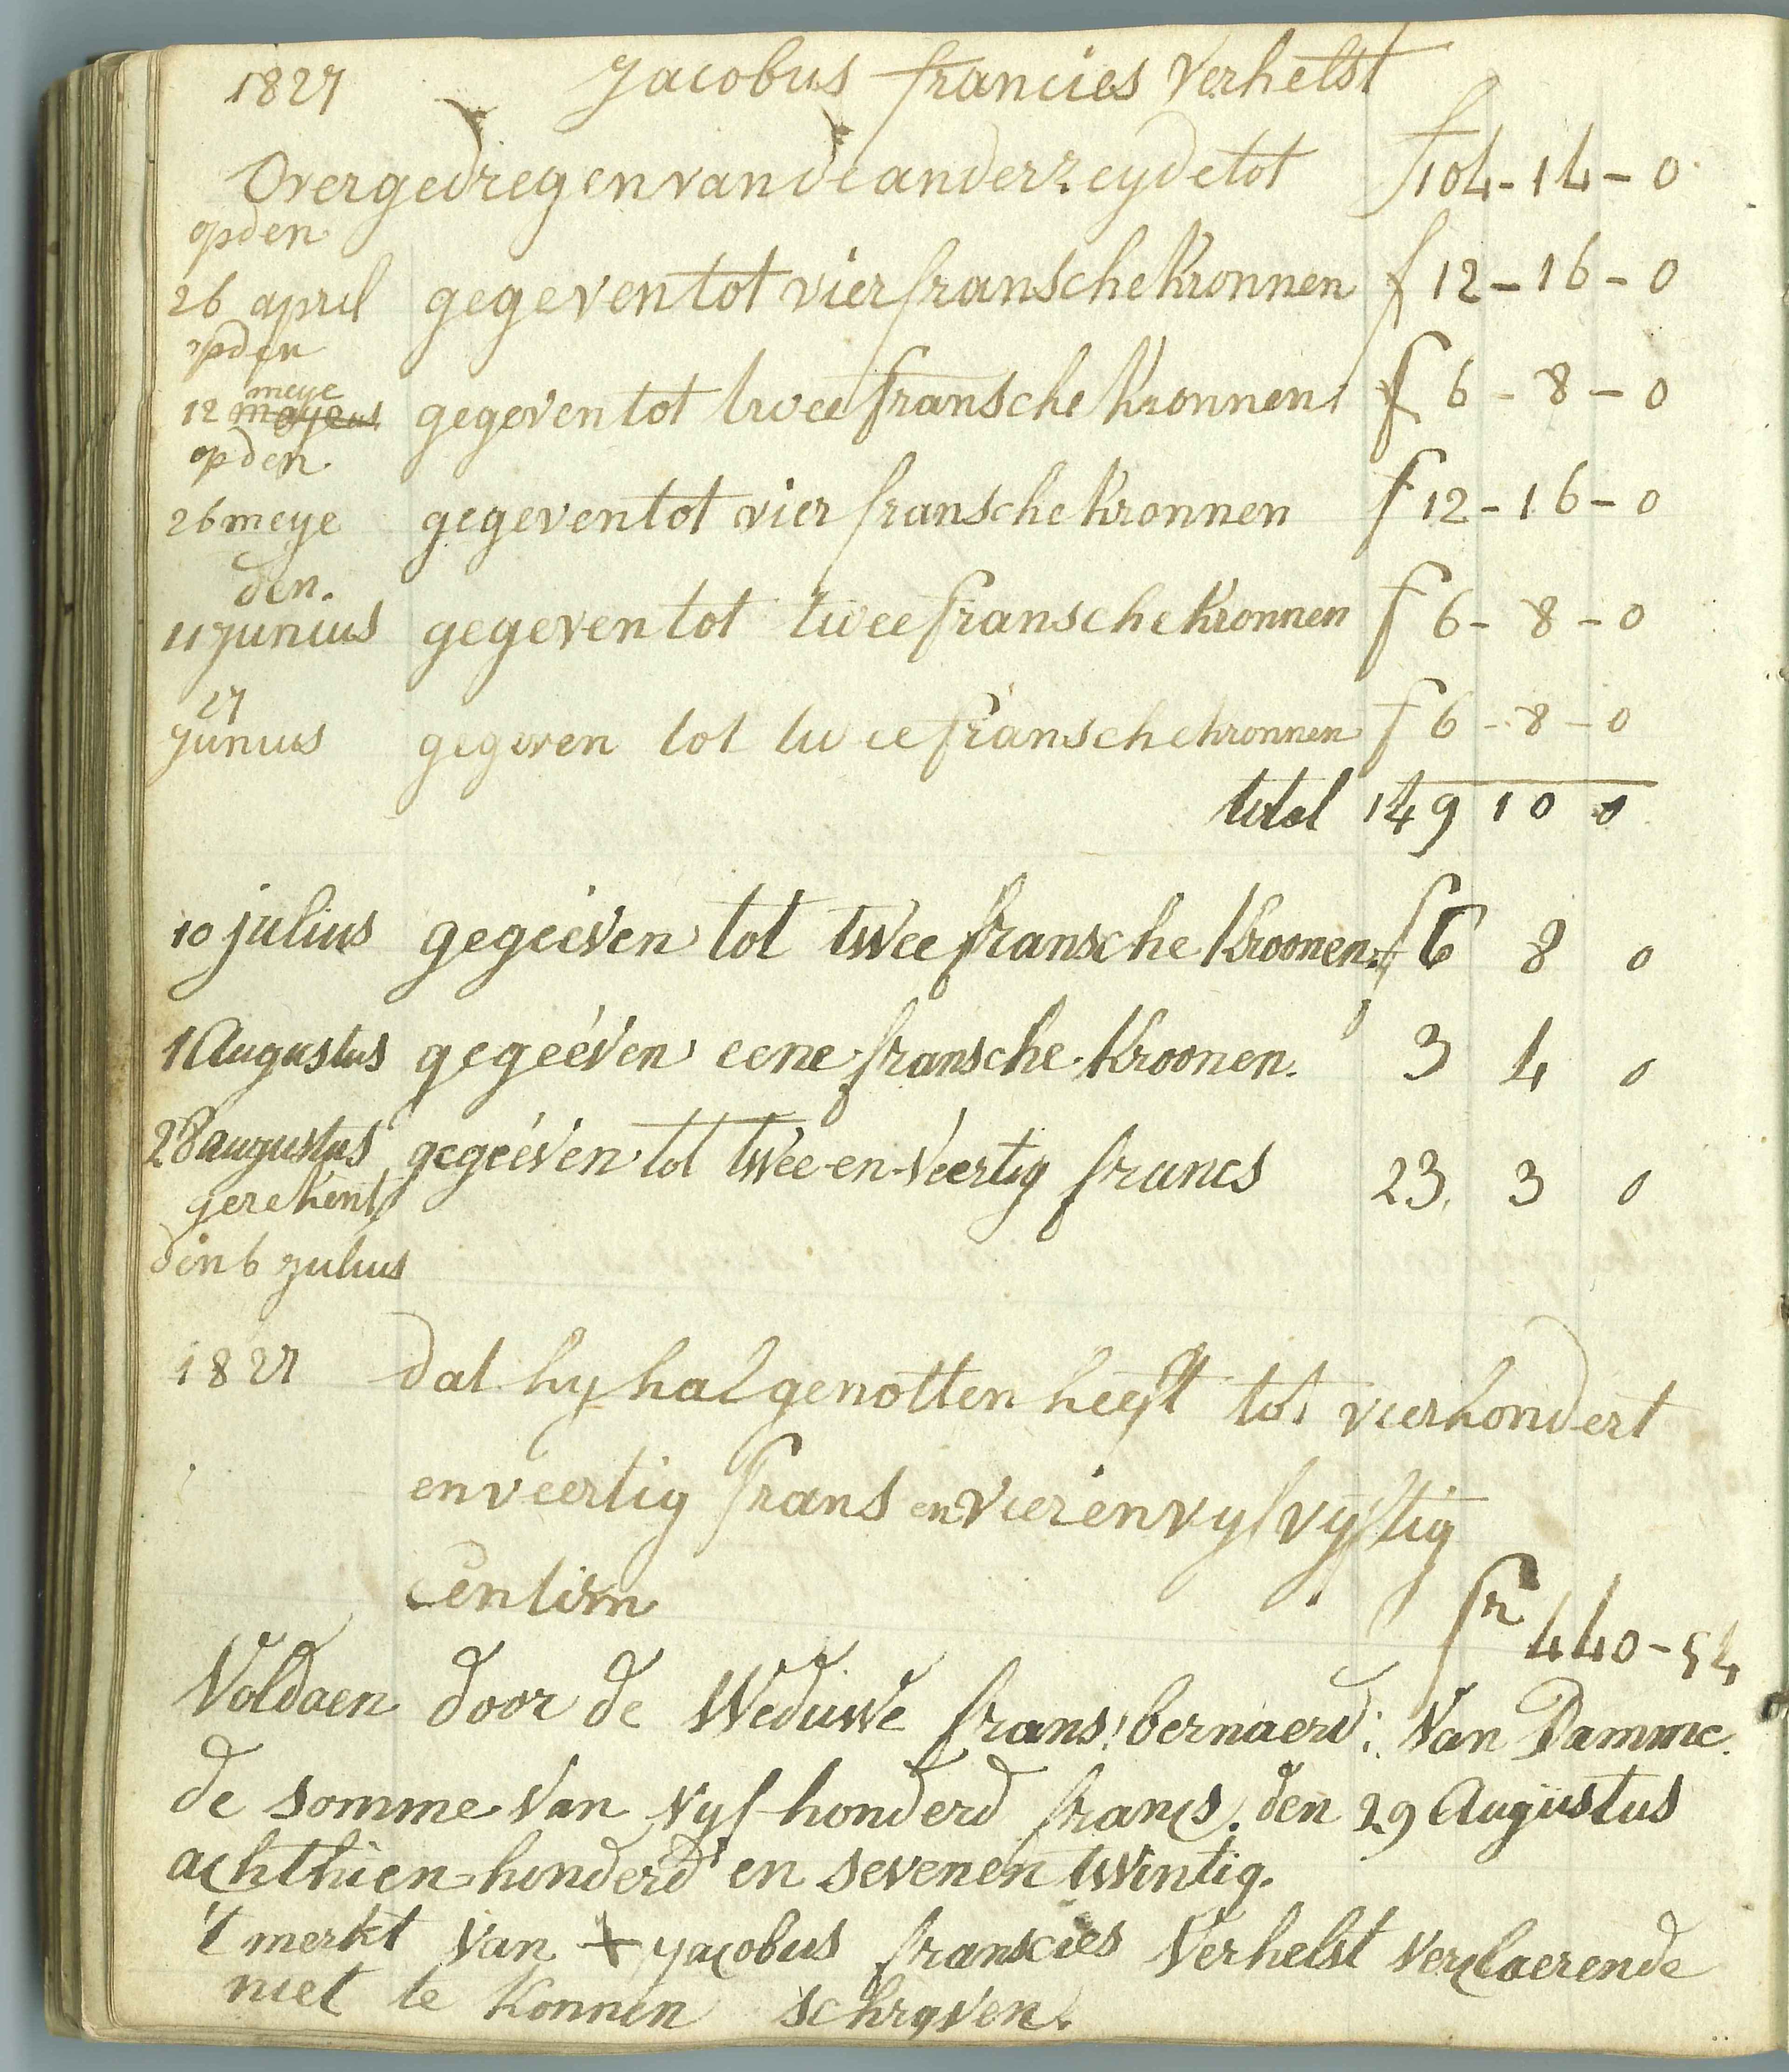 1827 Jacobus francies Verhelst
Overgedregen van de ander zeyde tot f 104 - 14 - 0
op den
26 april gegeven tot vier fransche kronnen f 12 - 16 - 0
op den
meye
12 gegeven tot twee fransche kronnen f 6 - 8 - 0
op den
26 meye gegeven tot vier fransche kronnen f 12 - 16 - 0
den.
11 junius gegeven tot twee fransche kronnen f 6 - 8 - 0
27
junius gegeven tot twee fransche kronnen f 6 - 8 - 0
total 149 10 0
10 julius gegeéven tot twee fransche kroonen. f 6 8 0
1 Augustus gegeéven eene fransche kroonen. 3 4 0
28 augustus gegeéven tot twée-en-veertig francs 23 3 0
gerekent
den 6 julius
1827 dat hy hal genotten heeft tot vierhondert
en veertig frans en vier en vyf vyftig
Centim
fr 440 - 54
Voldaen door de Weduwe frans: bernaerd: Van Damme.
de somme van vyf-honderd francs. den 29 Augustus
achthien-honderd en seven en twintig.
't merkt van + jacobus franscies Verhelst verclaerende
niet te konnen schryven.